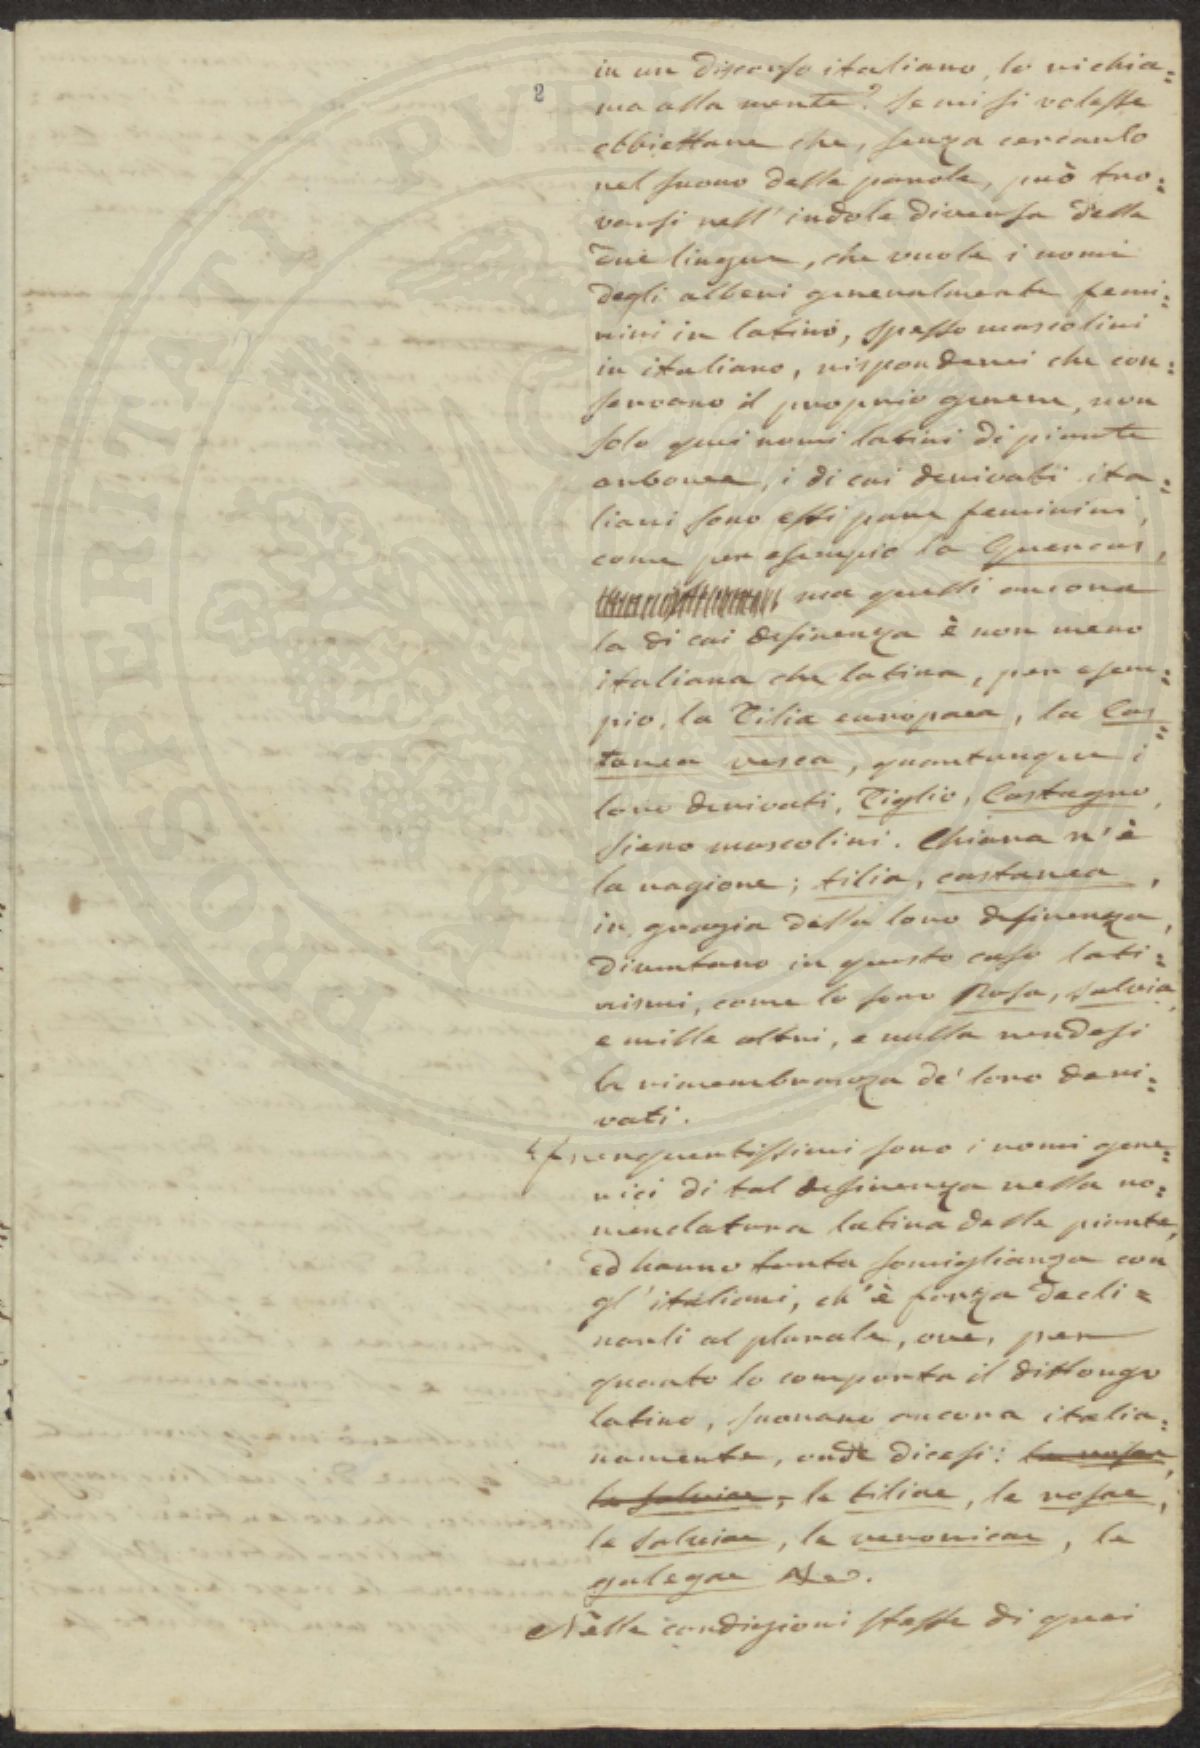 2
in un discorso italiano, lo richia=
ma alla mente? Se mi si volesse
obbiettare che, senza cercarlo
nel suono delle parole, può tro=
varsi nell'indole diversa delle
due lingue, che vuole i nomi
degli alberi generalmente femi=
nini in latino, spesso mascolini
in italiano, risponderei che con=
servano il proprio genere, non
solo quei nomi latini di piante
arboree, i di cui derivati ita=
liani sono essi pure feminini,
come per esempio la Quercus,
ma quelli ancora
la di cui desinenza è non meno
italiana che latina, per esem=
pio, la Tilia europaea, la Cas=
tanea vesca, quantunque i
loro derivati, Tiglio, Castagno,
sieno mascolini. Chiara n'è
la ragione; tilia, castanea,
in grazia della loro desinenza,
diventano in questo caso lati=
nismi, come lo sono Rosa, salvia,
e mille altri, e nulla rendesi
la rimembranza de' loro deri=
vati.
frequentissimi sono i nomi gene=
rici di tal desinenza nella no=
menclatura latina delle piante,
ed hanno tanta somiglianza con
gl'italiani, ch'è forza decli=
narli al plurale, ove, per
quanto lo comporta il dittongo
latino, suonano ancora italia=
namente, onde dicesi: la rosae,
la salviae, le tiliae, le rosae,
le salviae, le veronicae, le
galegae &c.
Nelle condizioni stesse di quei